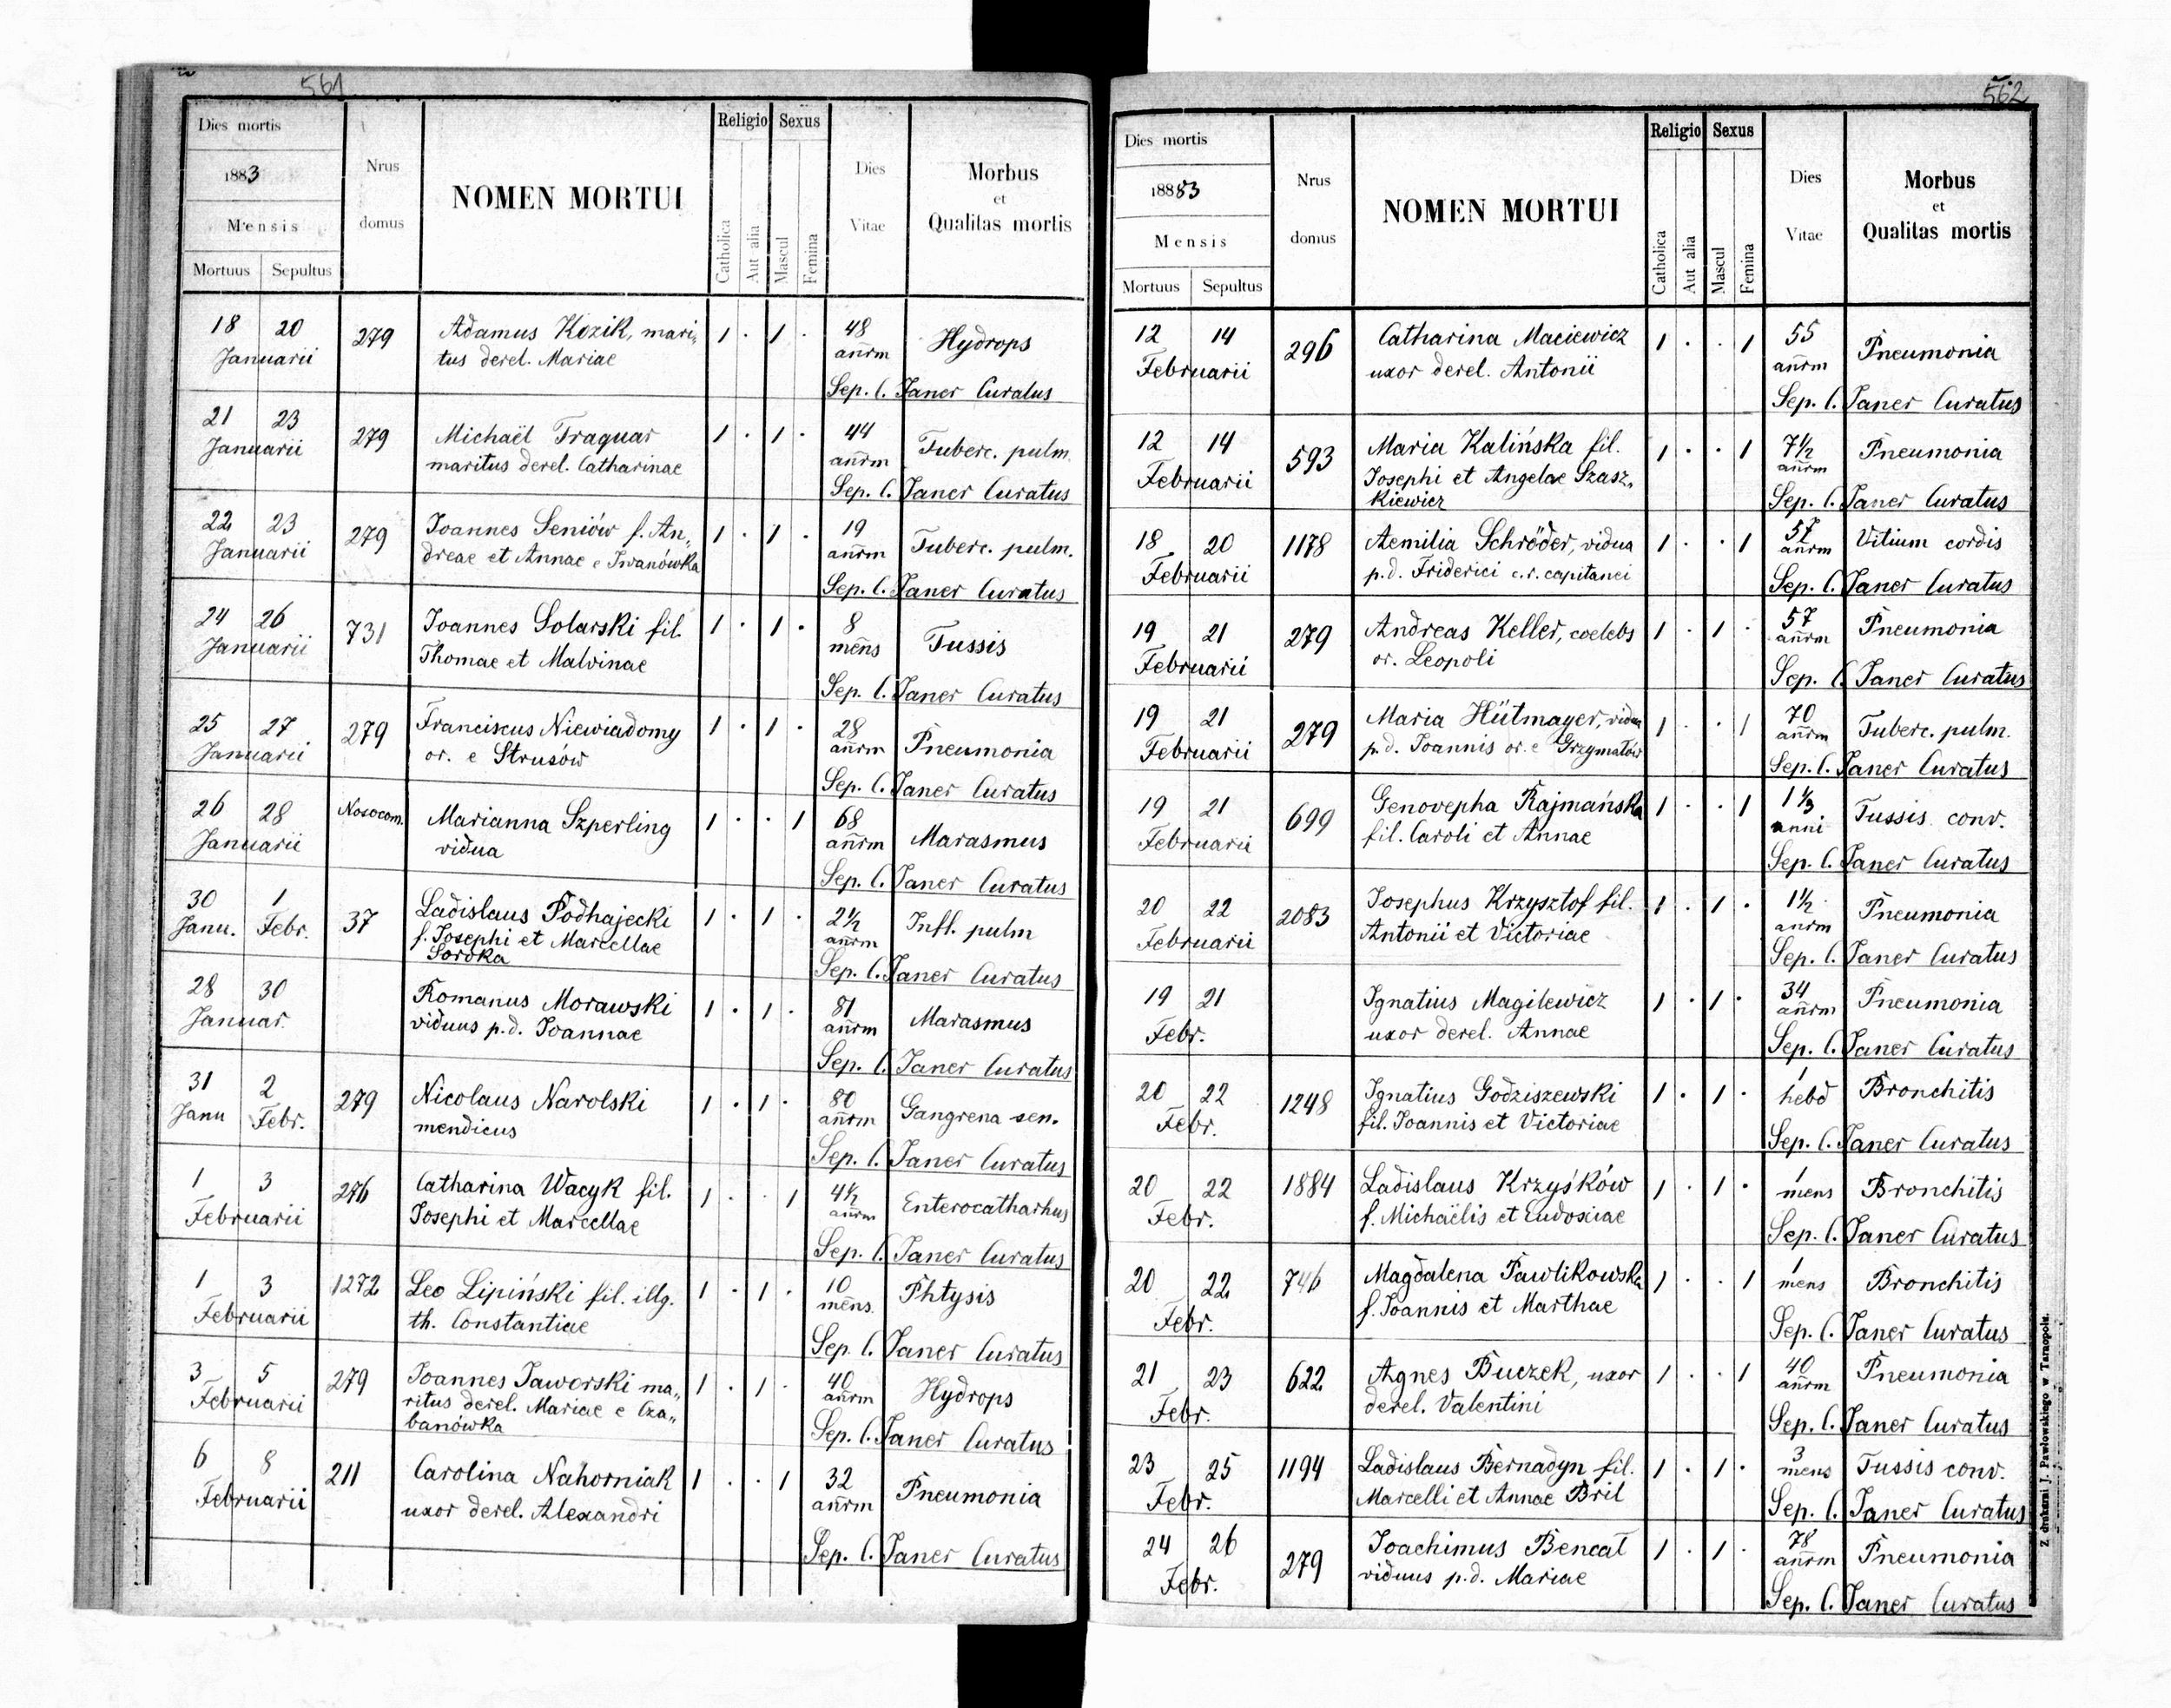 561
Dies mortis
1883
Mensis
Mortuus Sepultus
Nrus domus
NOMEN MORTUI
Religio
Catholica
Aut alia
Sexus
Mascul
Femina
Dies Vitae
Morbus
et
Qualitas mortis
18 20 279 Adamus Kozik, mari„ 1 . 1 . 48 Hydrops
Januarii tus derel. Mariae añrm
Sep. C. Janer Curatus
21 23 279 Michaël Traguar 1 . 1 . 44 Tuberc. pulm.
Januarii maritus derel. Catharinae añrm
Sep. C. Janer Curatus
22 23 279 Joannes Seniów f. An„ 1 . 1 . 19 Tuberc. pulm.
Januarii dreae et Annae e Iwanówka añrm
Sep. C. Janer Curatus
24 26 731 Joannes Solarski fil. 1 . 1 . 8 Tussis
Januarii Thomae et Malvinae mens
Sep. C. Janer Curatus
25 27 279 Franciscus Niewiadomy 1 . 1 . 28 Pneumonia
Januarii or. e Strusów añrm
Sep. C. Janer Curatus
26 28 Nosocom. Marianna Szperling 1 . . 1 68 Marasmus
Januarii vidua añrm
Sep. C. Janer Curatus
30 1 37 Ladislaus Podhajecki 1 . 1 . 2½ Infl. pulm
Janu. Febr. f. Josephi et Marcellae añrm
Soroka
Sep. C. Janer Curatus
28 30 Romanus Morawski 1 . 1 . 81 Marasmus
Januar. viduus p.d. Joannae añrm
Sep. C. Janer Curatus
31 2 279 Nicolaus Narolski 1 . 1 . 80 Gangrena sen.
Janu Febr. mendicus añrm
Sep. C. Janer Curatus
1 3 276 Catharina Wacyk fil. 1 . . 1 4½ Enterocatharhus
Februarii Josephi et Marcellae añrm
Sep. C. Janer Curatus
1 3 1272 Leo Lipiński fil. illg. 1 . 1 . 10 Phtysis
Februarii th. Constantiae mens.
Sep. C. Janer Curatus
3 5 279 Joannes Jaworski ma„ 1 . 1 . 40 Hydrops
Februarii ritus derel. Mariae e Cza„ añrm
banówka
Sep. C. Janer Curatus
6 8 211 Carolina Nahorniak 1 . . 1 32 Pneumonia
Februarii uxor derel. Alexandri añrm
Sep. C. Janer Curatus
562
Dies mortis
18883
Mensis
Mortuus Sepultus
Nrus domus
NOMEN MORTUI
Religio
Catholica
Aut alia
Sexus
Mascul
Femina
Dies Vitae
Morbus
et
Qualitas mortis
12 14 296 Catharina Maciewicz 1 . . 1 55 Pneumonia
Februarii uxor derel. Antonii añrm
Sep. C. Janer Curatus
12 14 593 Maria Kalińska fil. 1 . . 1 7½ Pneumonia
Februarii Josephi et Angelae Szasz„ añrm
kiewicz
Sep. C. Janer Curatus
18 20 1178 Aemilia Schröder, vidua 1 . . 1 57 Vitium cordis
Februarii p.d. Friderici c.r. capitanei añrm
Sep. C. Janer Curatus
19 21 279 Andreas Keller, coelebs 1 . 1 . 57 Pneumonia
Februarii or. Leopoli añrm
Sep. C. Janer Curatus
19 21 279 Maria Hütmayer, vidua 1 . . 1 70 Tuberc. pulm.
Februarii p.d. Joannis or. e Grzymałów añrm
Sep. C. Janer Curatus
19 21 699 Genovepha Rajmańska 1 . . 1 1⅓ Tussis conv.
Februarii fil. Caroli et Annae anni
Sep. C. Janer Curatus
20 22 2083 Josephus Krzysztof fil. 1 . 1 . 1½ Pneumonia
Februarii Antonii et Victoriae anrm
Sep. C. Janer Curatus
19 21 Ignatius Magilewicz 1 . 1 . 34 Pneumonia
Febr. uxor derel. Annae añrm
Sep. C. Janer Curatus
20 22 1248 Ignatius Godziszewski 1 . 1 . 1 Bronchitis
Febr. fil. Joannis et Victoriae hebd
Sep. C. Janer Curatus
20 22 1884 Ladislaus Krzyśków 1 . 1 . 1 Bronchitis
Febr. f. Michaëlis et Eudoxiae mens
Sep. C. Janer Curatus
20 22 746 Magdalena Pawlikowska 1 . . 1 1 Bronchitis
Febr. f. Joannis et Marthae mens
Sep. C. Janer Curatus
21 23 622 Agnes Buczek, uxor 1 . . 1 40 Pneumonia
Febr. derel. Valentini añrm
Sep. C. Janer Curatus
23 25 1194 Ladislaus Bernadyn fil. 1 . 1 . 3 Tussis conv.
Febr. Marcelli et Annae Bril mens
Sep. C. Janer Curatus
24 26 279 Joachimus Bencat 1 . 1 . 78 Pneumonia
Febr. viduus p.d. Mariae añrm
Sep. C. Janer Curatus
Z drukarni J. Pawłowskiego w Tarnopolu.